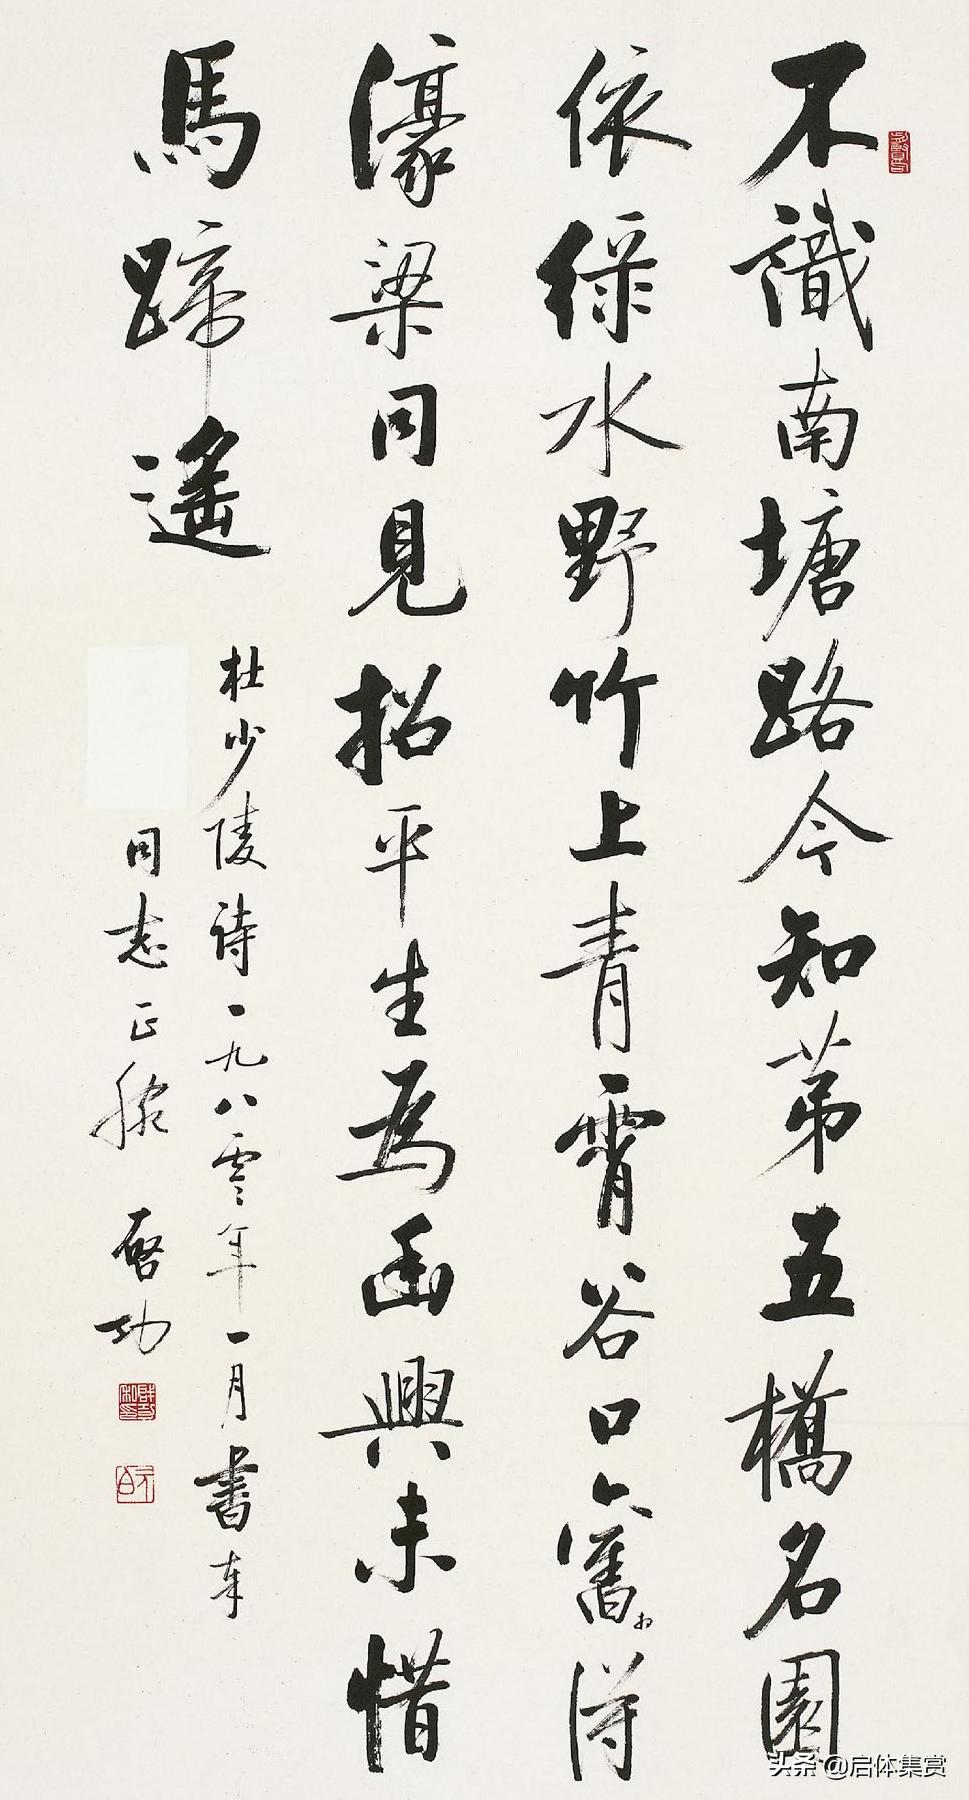 不識南塘路今知第五橋名園
依綠水野竹上青霄谷口舊相得
濠梁同見招平生為幽興未惜
馬蹄遙
杜少陵詩一九八零年一月書奉
同志正腕 啓功
头条 @启体集赏